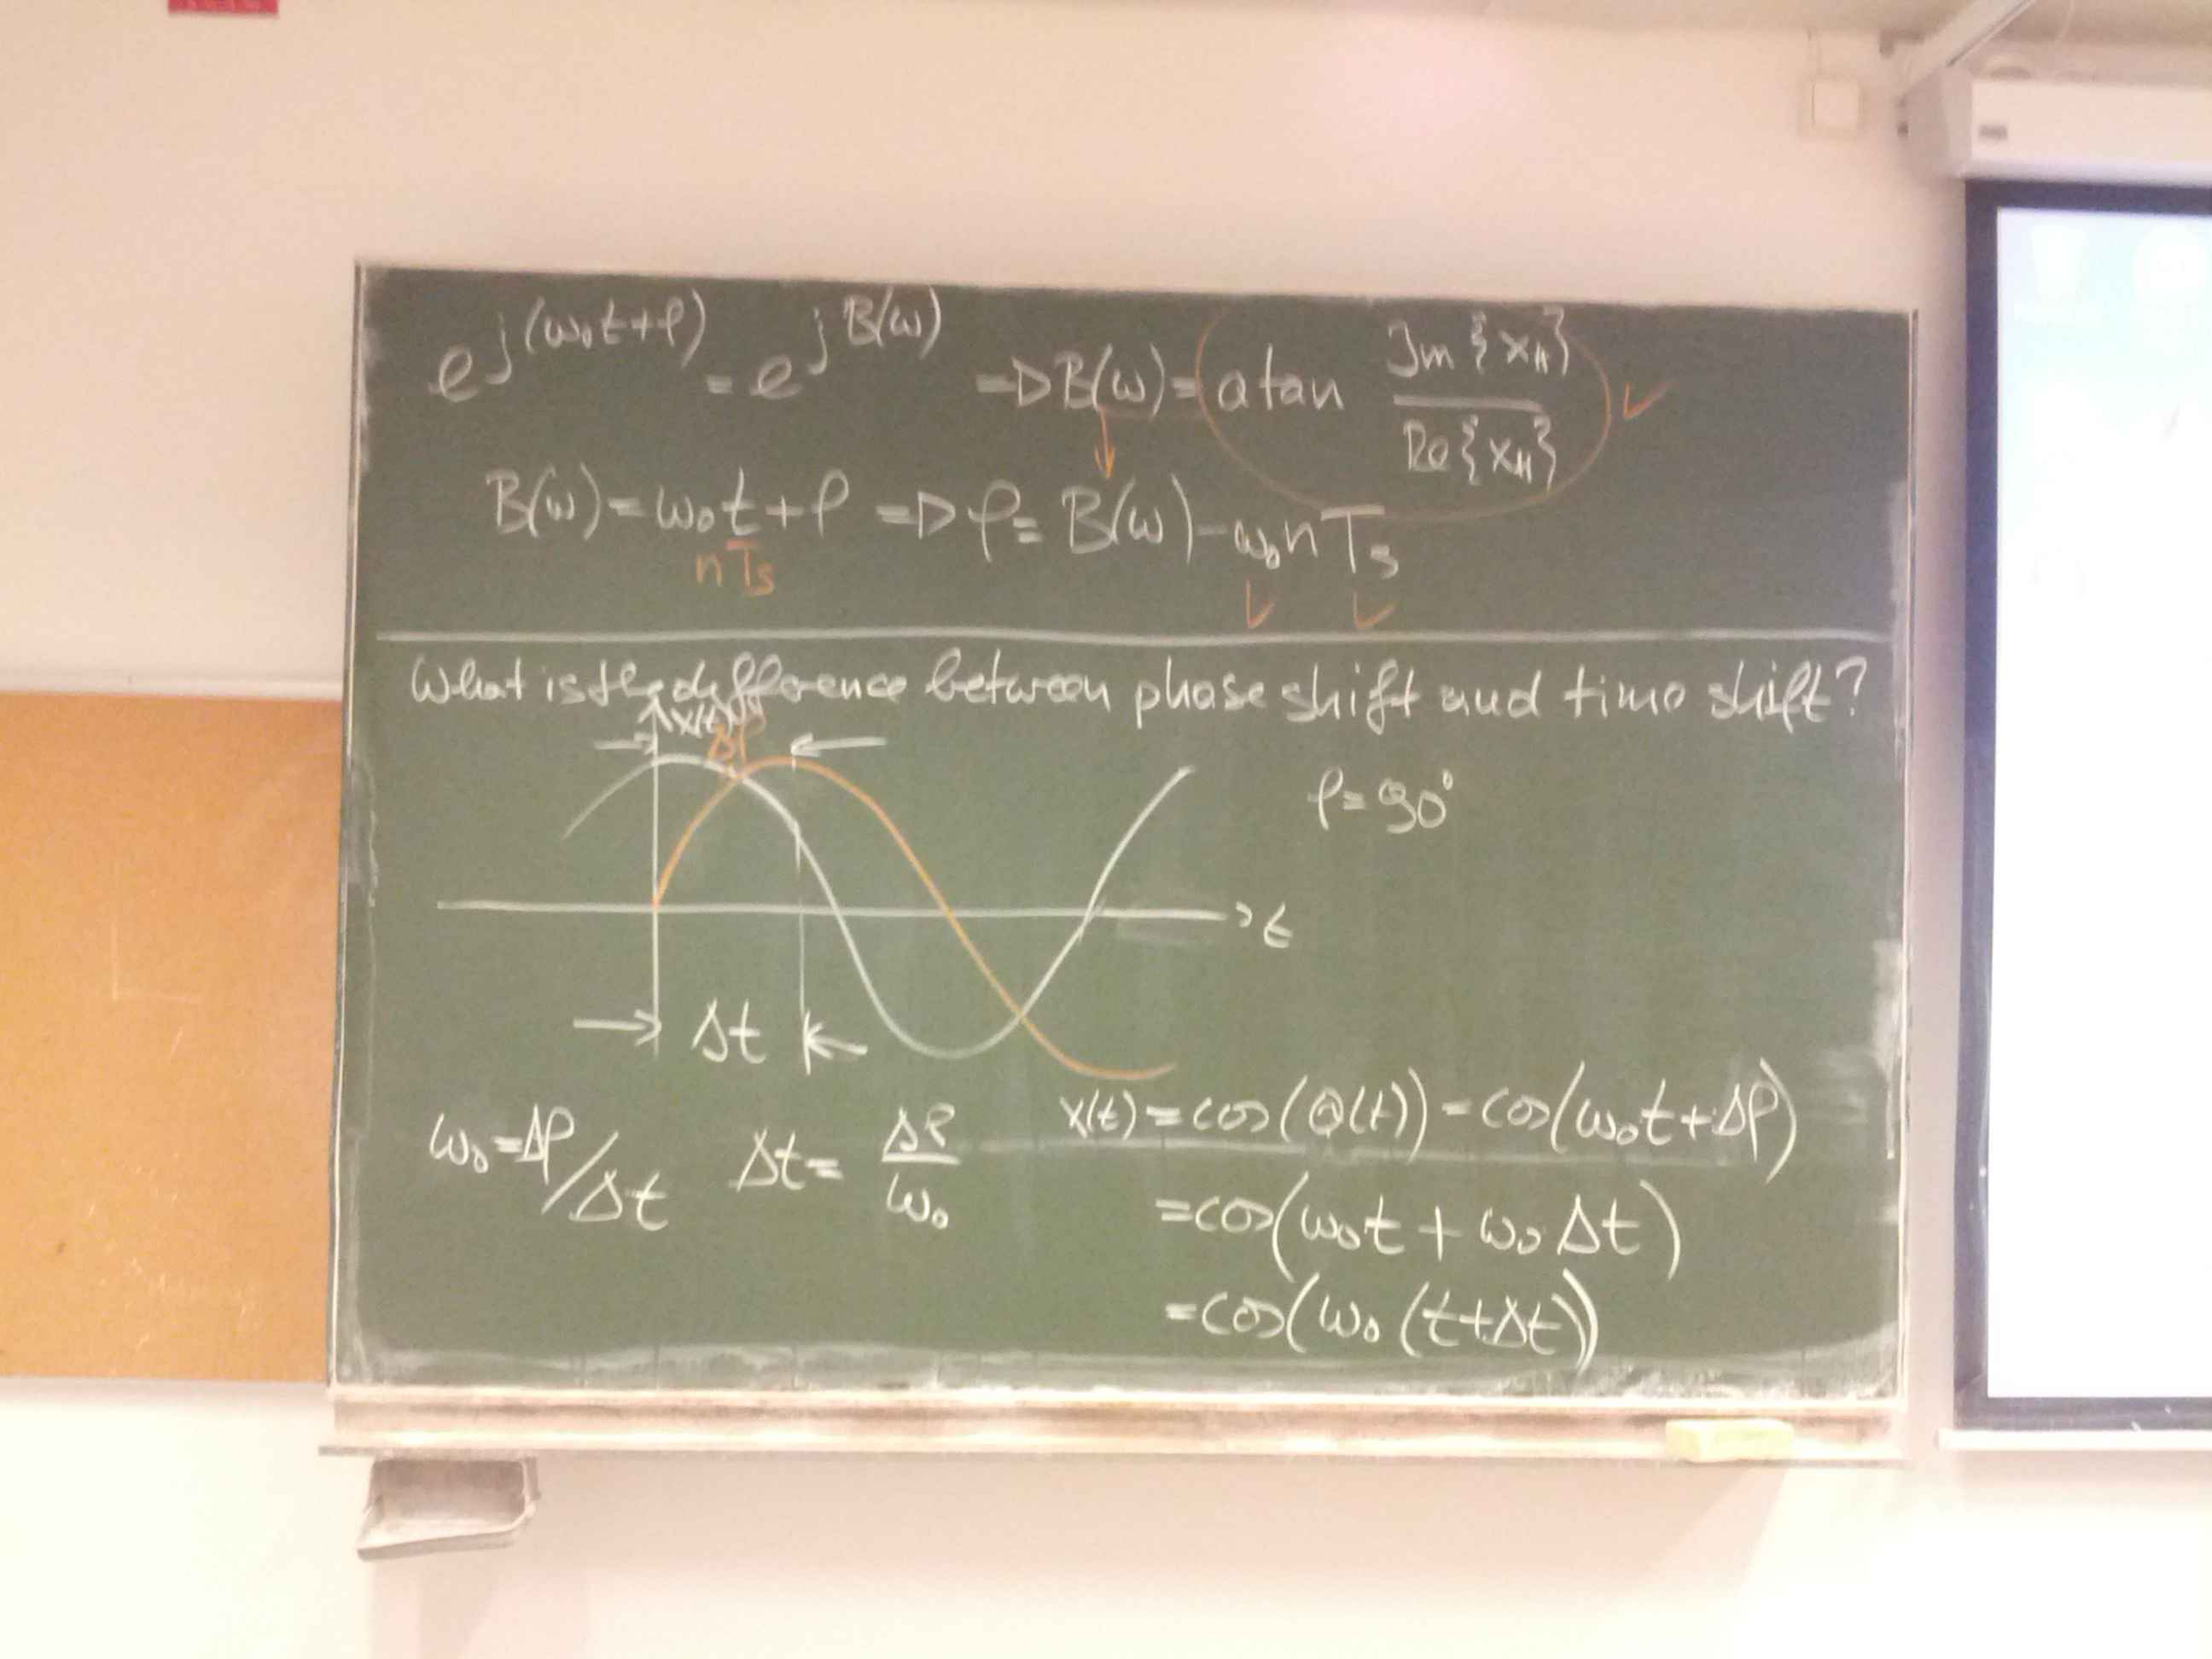 e^j(ω₀t+φ) = e^jB(ω) => B(ω) = atan Im{x_H} / Re{x_H} ✓
B(ω) = ω₀t + φ => φ = B(ω) - ω₀nTs
nTs ✓ ✓
What is the difference between phase shift and time shift?
x(t)
Δφ
φ = 90°
t
Δt
ω₀ = Δφ/Δt Δt = Δφ/ω₀
x(t) = cos(Θ(t)) = cos(ω₀t + Δφ)
= cos(ω₀t + ω₀Δt)
= cos(ω₀(t+Δt))